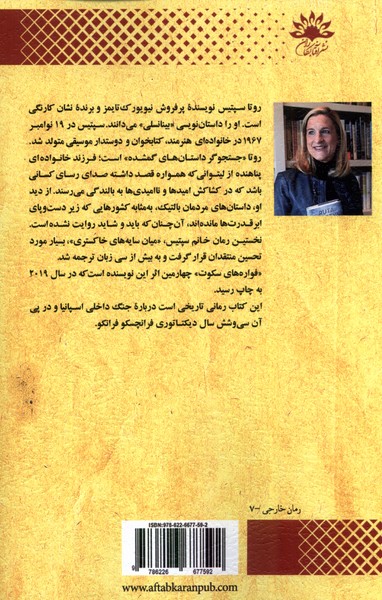 نشر آفتابکاران
روتا سپتیس نویسندهٔ پرفروش نیویورک‌تایمز و برندهٔ نشان کارنگی
است. او را داستان‌نویسی «بینانسلی» می‌دانند. سپتیس در ۱۹ نوامبر
۱۹۶۷ در خانواده‌ای هنرمند، کتابخوان و دوستدار موسیقی متولد شد.
روتا «جستجوگر داستان‌های گمشده» است؛ فرزند خانواده‌ای
پناهنده از لیتوانی که همواره قصد داشته صدای رسای کسانی
باشد که در کشاکش امیدها و ناامیدی‌ها به بالندگی می‌رسند. از دید
او، داستان‌های مردمان بالتیک، به‌مثابه کشورهایی که زیر دست‌وپای
ابرقدرت‌ها مانده‌اند، آن‌چنان که باید و شاید روایت نشده است.
نخستین رمان خانم سپتیس، «میان سایه‌های خاکستری»، بسیار مورد
تحسین منتقدان قرار گرفت و به بیش از سی زبان ترجمه شد.
«فواره‌های سکوت» چهارمین اثر این نویسنده است که در سال ۲۰۱۹
به چاپ رسید.
این کتاب رمانی تاریخی است دربارهٔ جنگ داخلی اسپانیا و در پی
آن سی‌وشش سال دیکتاتوری فرانچسکو فرانکو.
رمان خارجی -۷۰
ISBN: 978-622-6677-59-2
9 786226 677592
www.aftabkaranpub.com